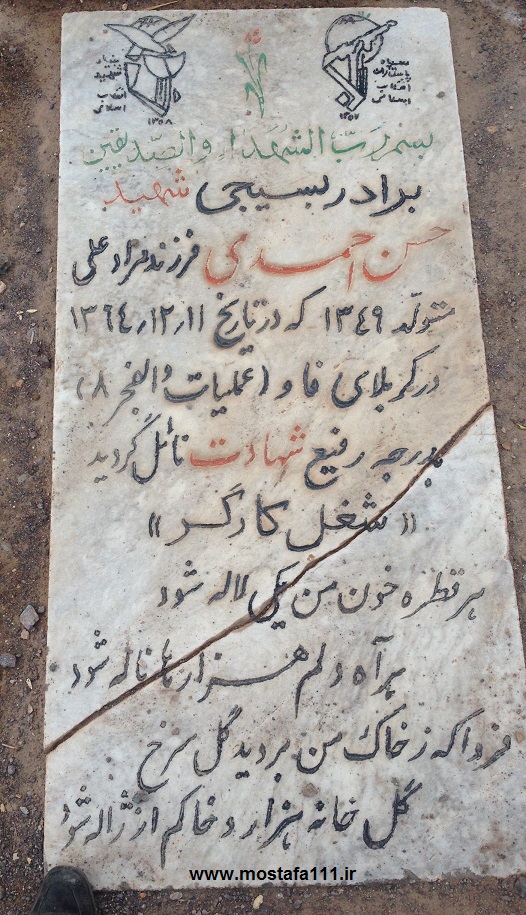 سپاه پاسداران انقلاب اسلامی
۱۳۵۷
بنیاد شهید انقلاب اسلامی
۱۳۵۸
بسم رب الشهداء والصدیقین
برادر بسیجی شهید
حسن احمدی فرزند مراد علی
متولد ۱۳۴۹ که در تاریخ ۱۳۶۴،۱۲،۱۱
در کربلای فاو (عملیات والفجر ۸)
بدرجه رفیع شهادت نائل گردید
«شغل کارگر»
هر قطره خون من یکی لاله شود
هر آه دلم هزارها ناله شود
فردا که ز خاک من بروید گل سرخ
گل خانه هزار و خاکم از ژاله شود
www.mostafa111.ir